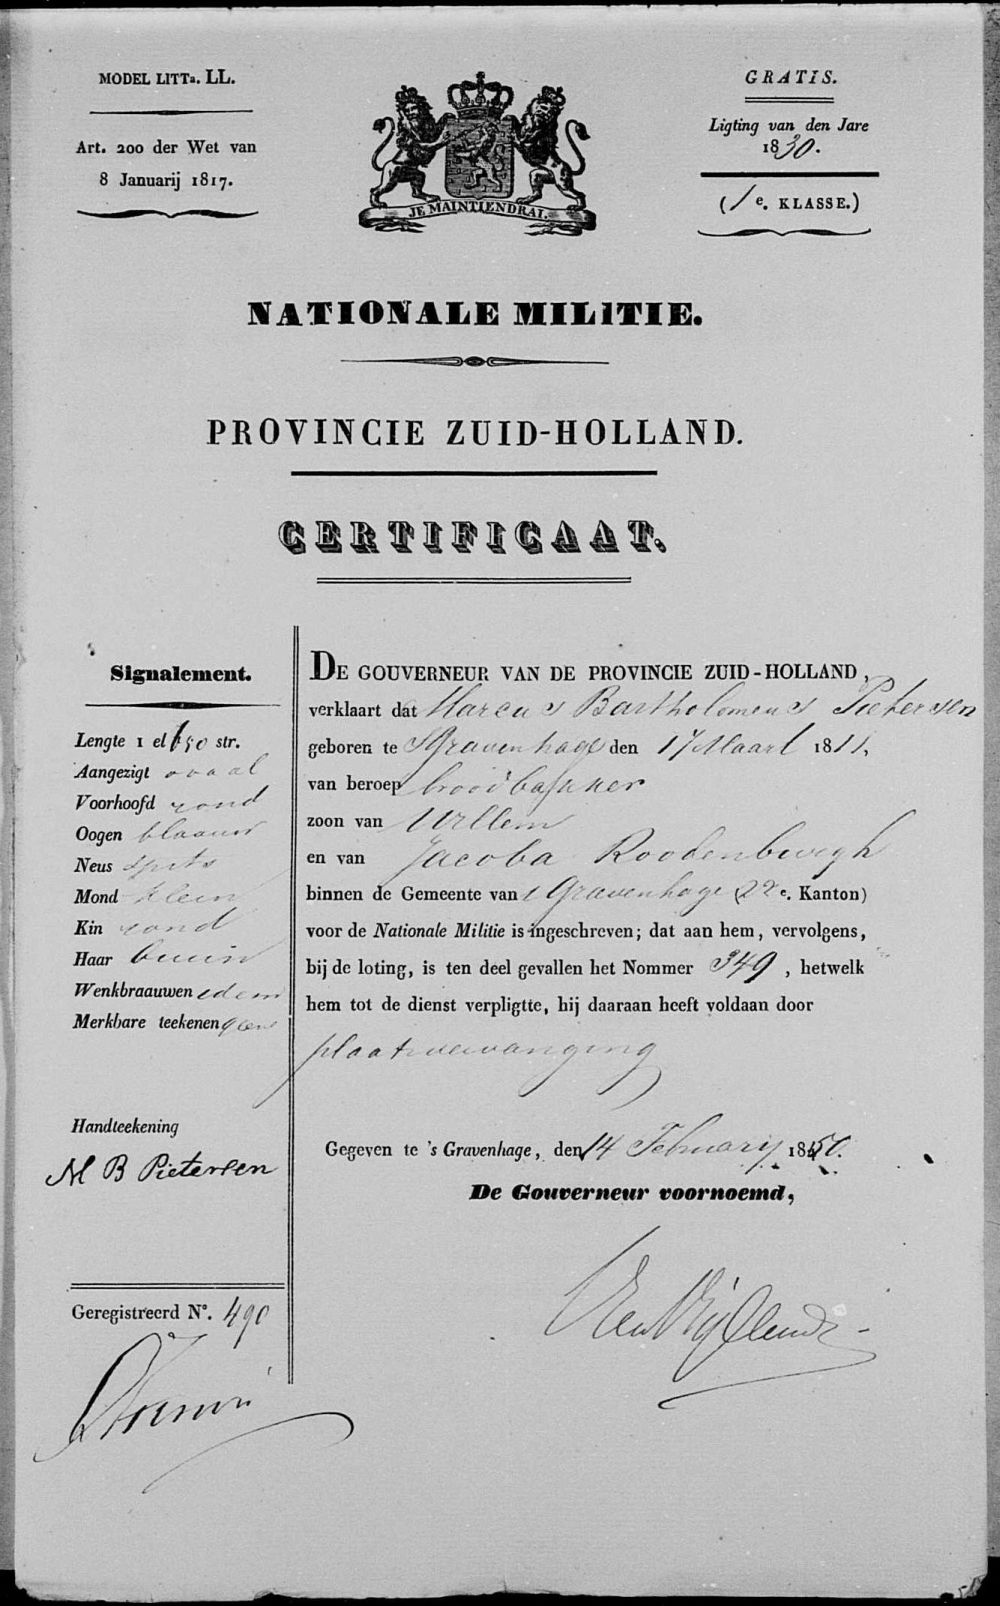 MODEL LITTa. LL.
Art. 200 der Wet van
8 Januarij 1817.
JE MAINTIENDRAI.
GRATIS.
Ligting van den Jare
1830.
(1e. KLASSE.)
NATIONALE MILITIE.
PROVINCIE ZUID-HOLLAND.
CERTIFICAAT.
Signalement.
Lengte 1 el 690 str.
Aangezigt ovaal
Voorhoofd rond
Oogen blaauw
Neus spits
Mond klein
Kin rond
Haar bruin
Wenkbraauwen idem
Merkbare teekenen geene
Handteekening
M B Pietersen
Geregistreerd No. 490
DE GOUVERNEUR VAN DE PROVINCIE ZUID-HOLLAND,
verklaart dat Marcus Bartholomeus Pietersen
geboren te s'Gravenhage den 17 Maart 1811,
van beroep broodbakker
zoon van Willem
en van Jacoba Roodenburgh
binnen de Gemeente van s Gravenhage (22e. Kanton)
voor de Nationale Militie is ingeschreven; dat aan hem, vervolgens,
bij de loting, is ten deel gevallen het Nommer 349, hetwelk
hem tot de dienst verpligtte, hij daaraan heeft voldaan door
plaatsvervanging
Gegeven te 's Gravenhage, den 14 Februarij 1850.
De Gouverneur voornoemd,